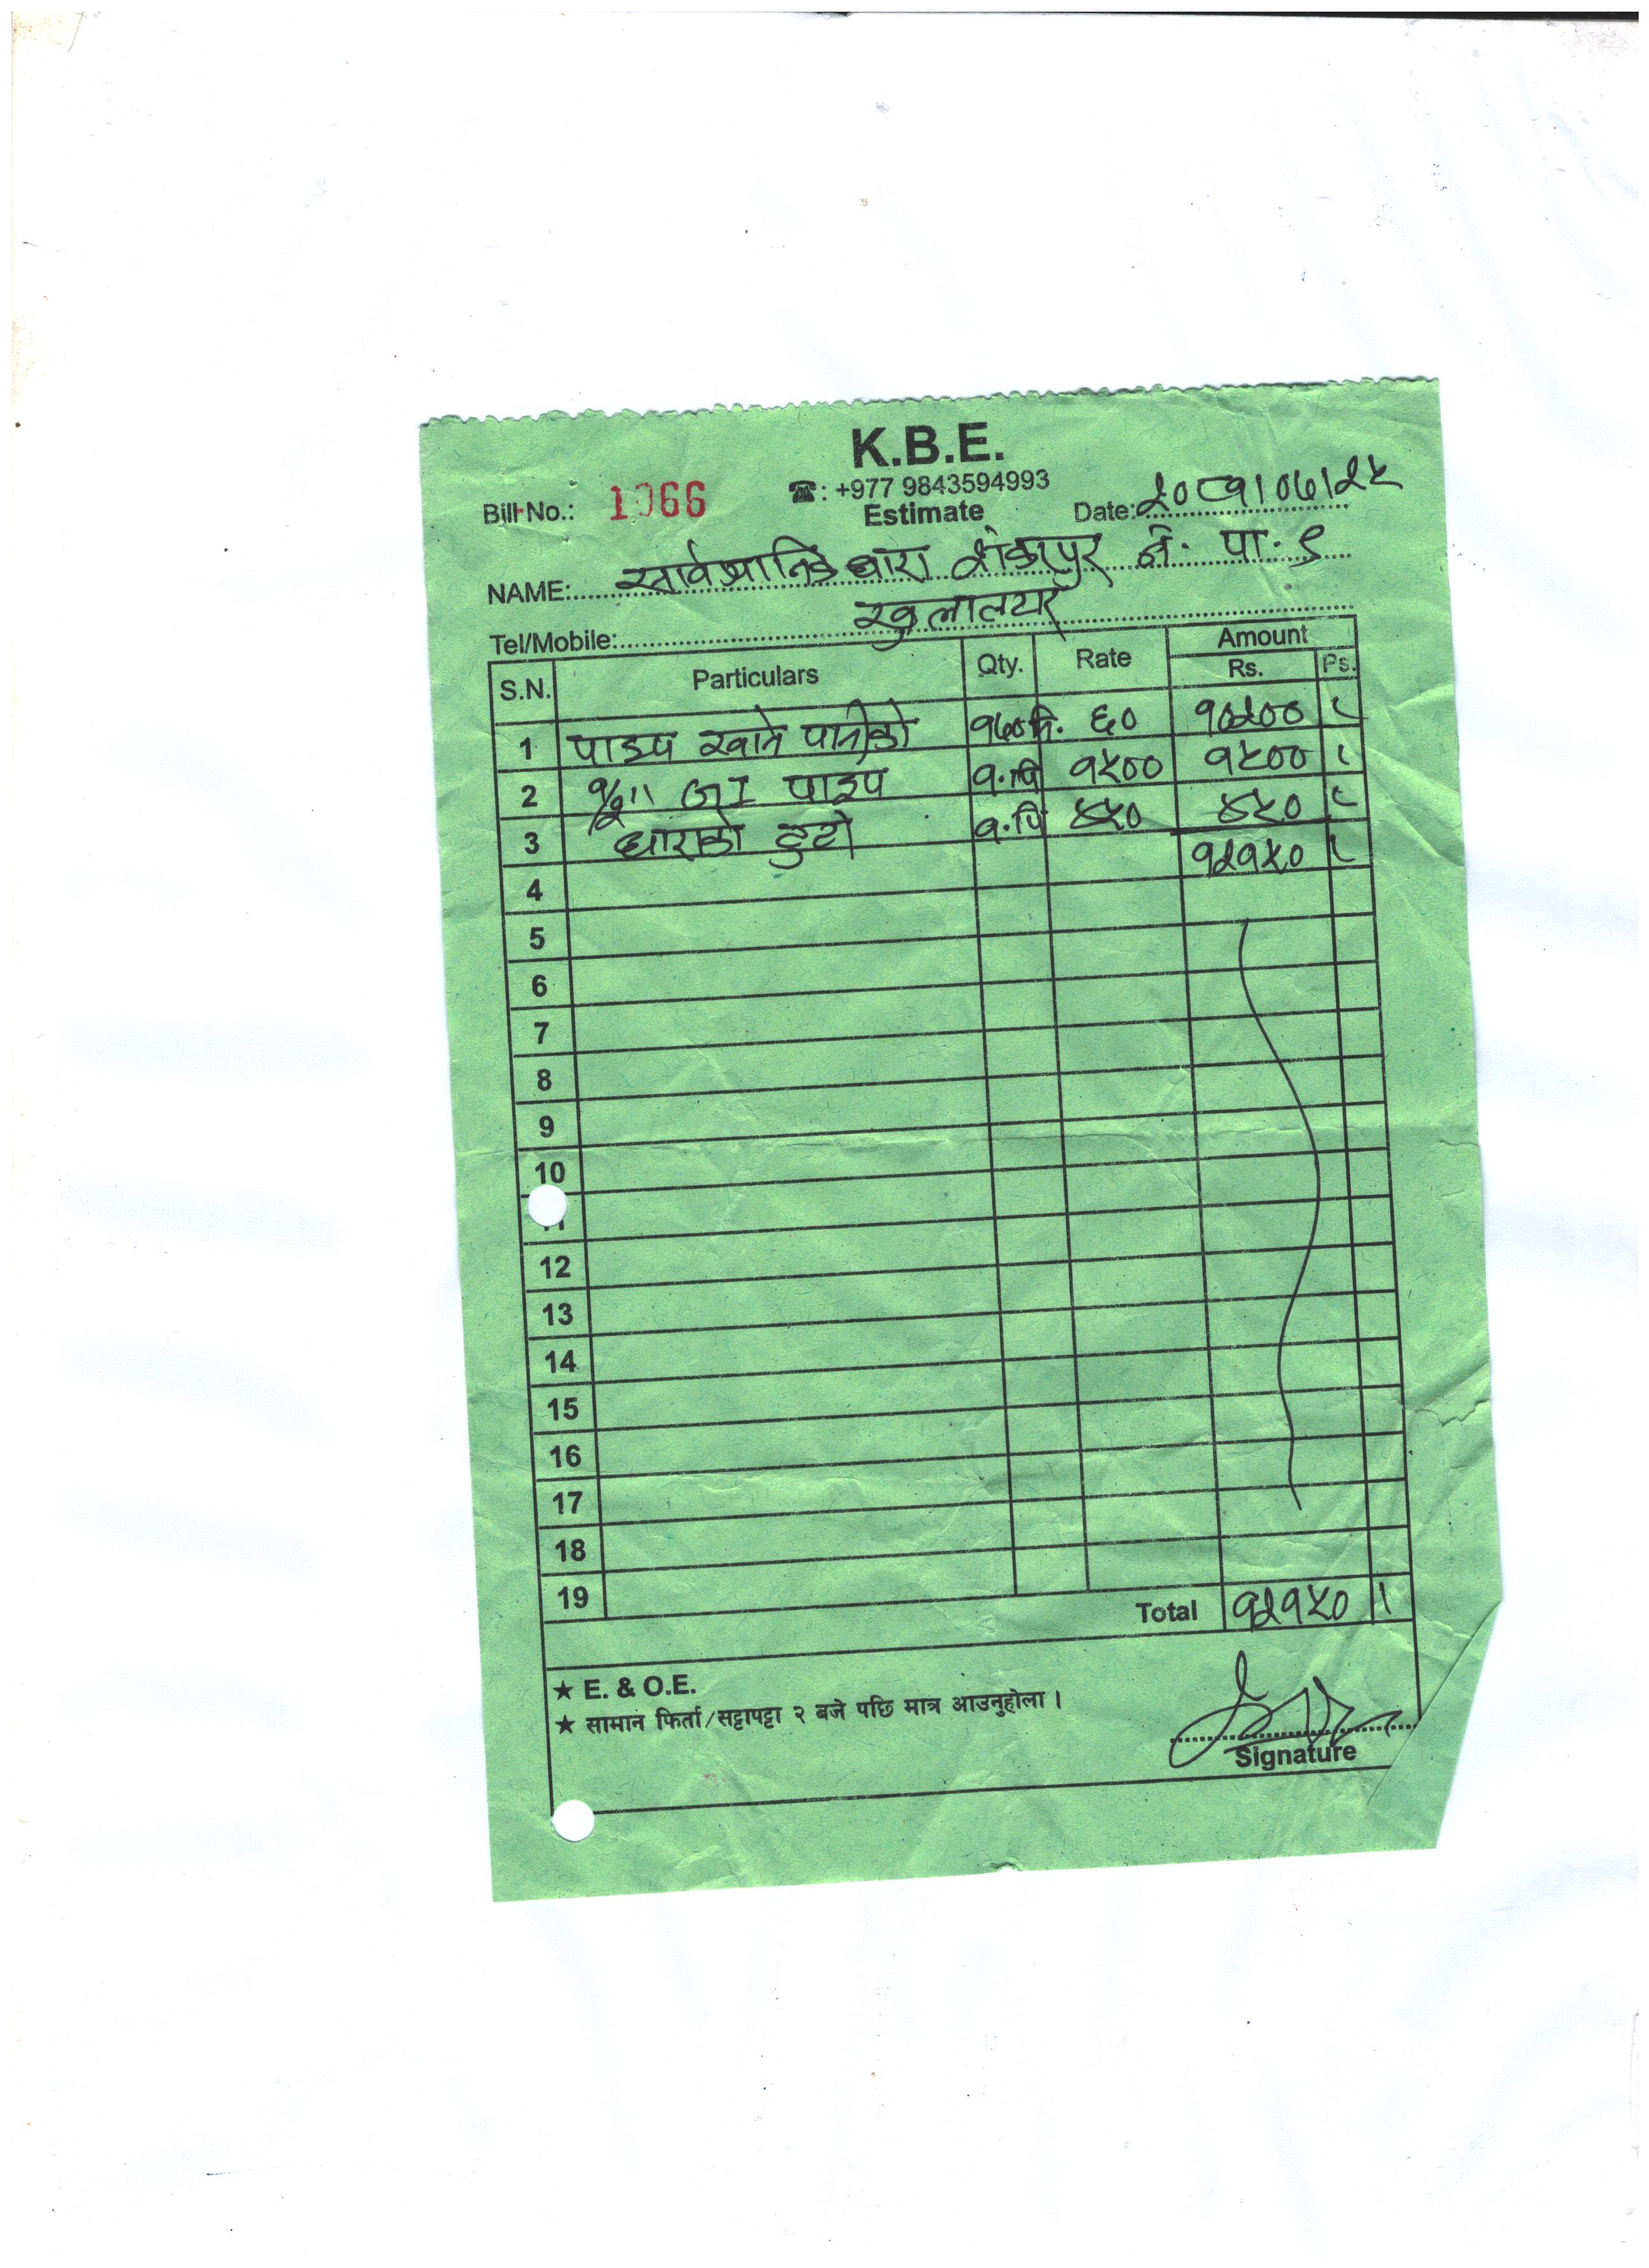 K.B.E.
☎: +977 9843594993
Bill No.: 1066
Estimate
Date: २०८१।०७।२५
NAME: सार्वजानिक धारा शंकरपुर न. पा. ९
Tel/Mobile:
S.N. Particulars Qty. Rate Amount
Rs. Ps.
1 पाइप खाने पानीको १७०मि. ६० १०२०० ।
2 १/२" GI पाइप १.पि १५०० १५०० ।
3 धाराको टुटो १.पि ४५० ४५० ।
4 १२१५० ।
5
6
7
8
9
10
11
12
13
14
15
16
17
18
19
Total १२१५० ।
★ E. & O.E.
★ सामान फिर्ता/सट्टापट्टा २ बजे पछि मात्र आउनुहोला ।
Signature